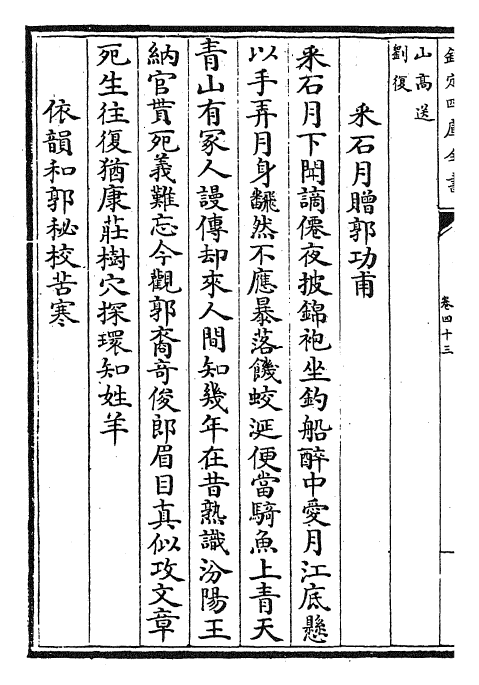 欽定四庫全書
卷四十三
山高送
劉復
采石月贈郭功甫
采石月下閗謫僊夜披錦袍坐釣船醉中愛月江底懸
以手弄月身飜然不應暴落饑蛟涎便當騎魚上青天
青山有冢人謾傳却來人間知幾年在昔熟識汾陽王
納官貰死義難忘今觀郭裔奇俊郎眉目真似攻文章
死生往復猶康莊樹穴探環知姓羊
依韻和郭秘校苦寒